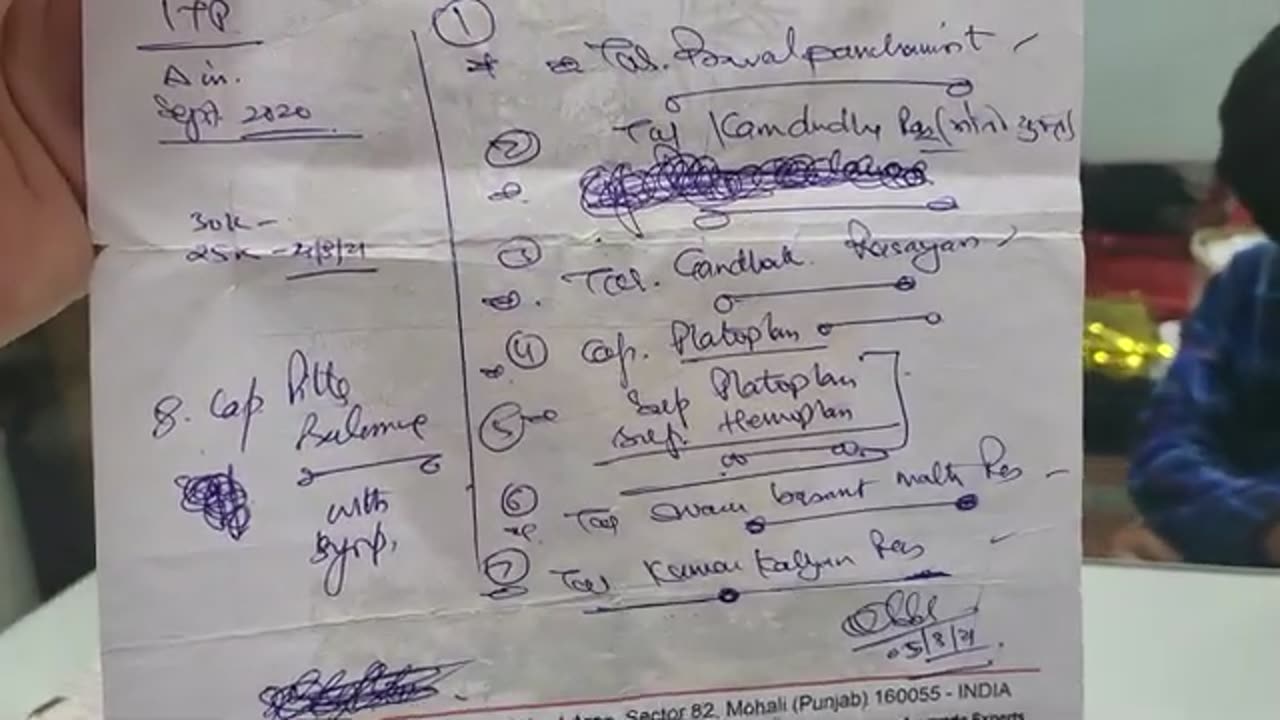 ITP
Δ in.
Sept. 2020
30K -
25K - 4/8/21
8. Cap. Pitta
Balance
with
Syrp.
①
Tab. Praval panchamrit
② Tab Kamdudha Ras (मोती युक्त)
③
Tab. Gandhak Rasayan
④ Cap. Platoplan
⑤ Syp Platoplan
Syp. Hemoplan
⑥
Tab Swarn basant malti Ras
⑦
Tab Kumar Kalyan Ras
05/8/21
Area, Sector 82, Mohali (Punjab) 160055 - INDIA
Experts